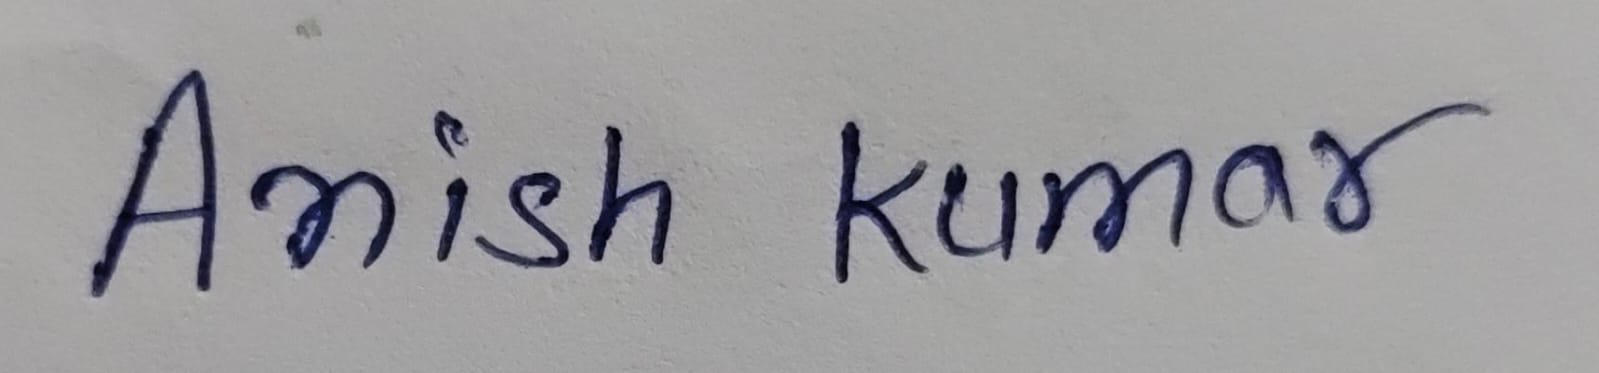 Anish kumar